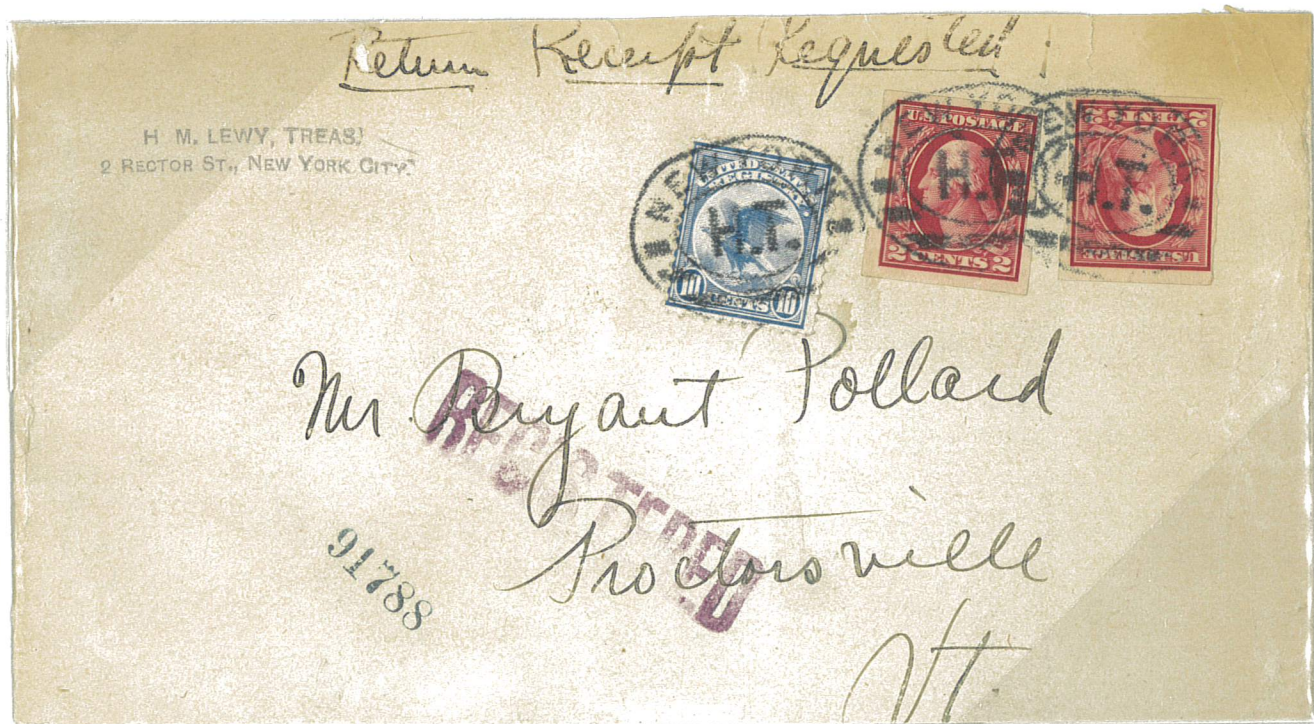 Return Receipt Requested
H M. LEWY, TREAS.
2 RECTOR ST., NEW YORK CITY.
NEW YORK, N.Y.
H.T.
UNITED STATES
REGISTRY
10 CENTS 10
U.S. POSTAGE
2 CENTS 2
H.T.
U.S. POSTAGE
2 CENTS 2
H.T.
Mr. Bryant Pollard
REGISTERED
Proctorsville
91788
Vt.